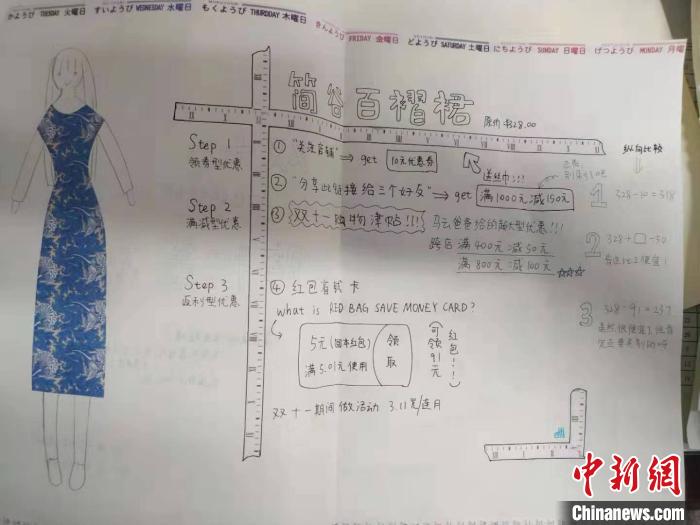 かようび TUESDAY 火曜日
すいようび WEDNESDAY 水曜日
もくようび THURDDAY 木曜日
きんようび FRIDAY 金曜日
どようび SATURDAY 土曜日
にちようび SUNDAY 日曜日
げつようび MONDAY 月曜
简谷百褶裙
原价 328.00
Step 1
领券型优惠
① "关注店铺" ⇒ get 10元优惠券
送丝巾!!!
② "分享此链接给三个好友" ⇒ get 满1000元减150元
Step 2
满减型优惠
③ 双十一购物津贴!!!
马云爸爸给的超大型优惠!!!
跨店满400元减50元
满800元减100元
Step 3
返利型优惠
④ 红包省钱卡
What is RED BAG SAVE MONEY CARD?
5元(回本红包)
满5.01元使用
领取
可领91元
红包!!!
双十一期间做活动 3.11元/连月
纵向比较
1 328-10=318
2 328+□-50
3 328-91=237
中新网
Chinanews.com